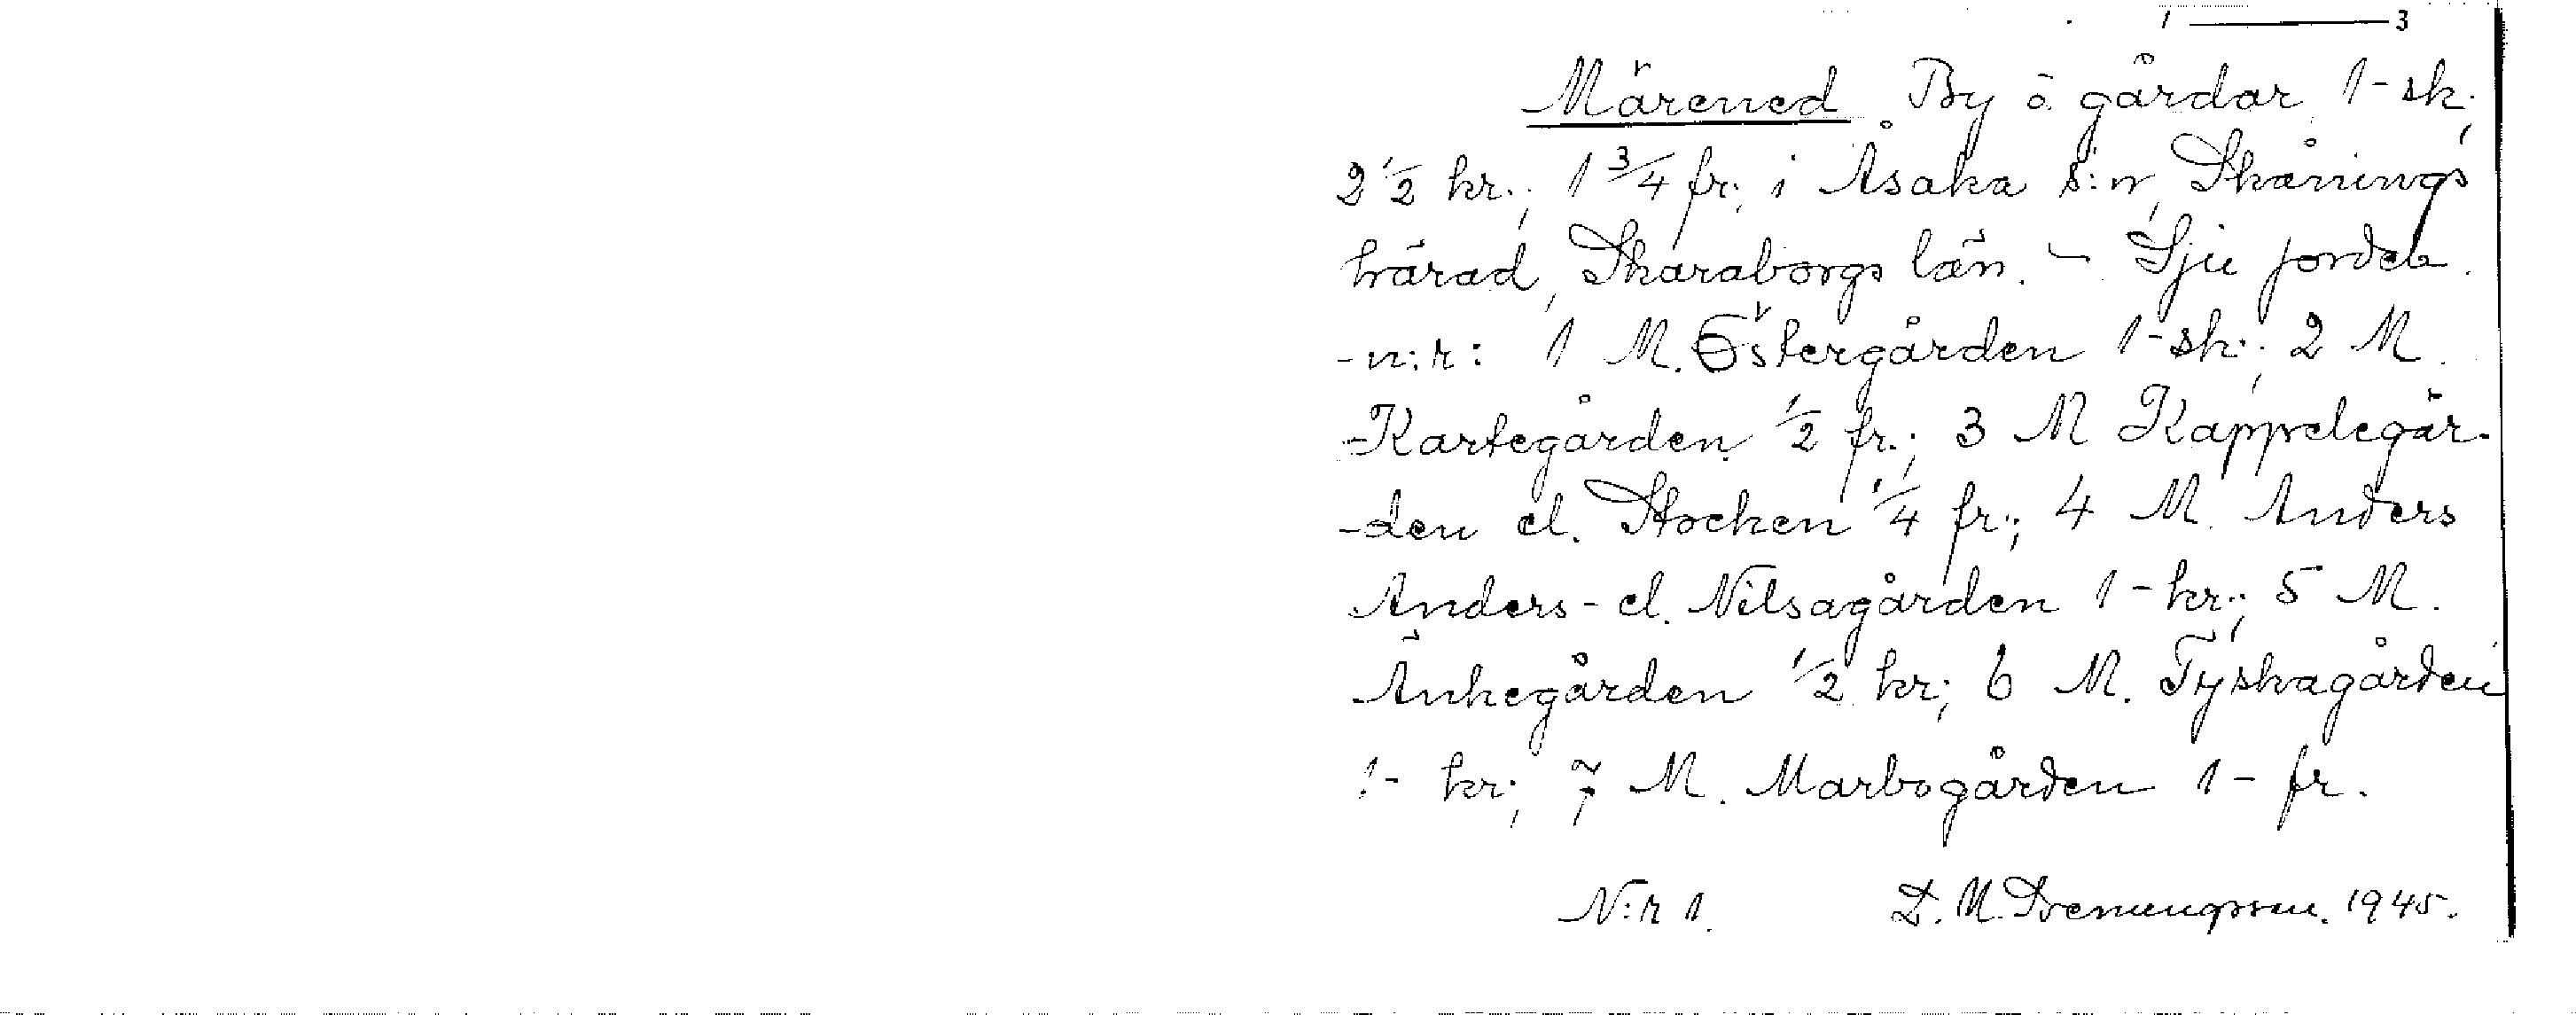 1 — 3
Märened By o. gårdar 1-sk.;
2 1/2 kr.; 1 3/4 fr; i Åsaka s:n, Skånings
härad, Skaraborgs län. - Sju jordeb.
-n:r: 1 M. Östergården 1-sk.; 2 M.
-Kartegården 1/2 fr.; 3 M Kappelegår-
-den el. Stocken 1/4 fr.; 4 M. Anders
Anders- el. Nilsagården 1-kr.; 5 M.
Änkegården 1/2 kr; 6 M. Tyskagården
1- kr; 7 M. Marbogården 1- fr.
N:r 1. D. M. 1945.